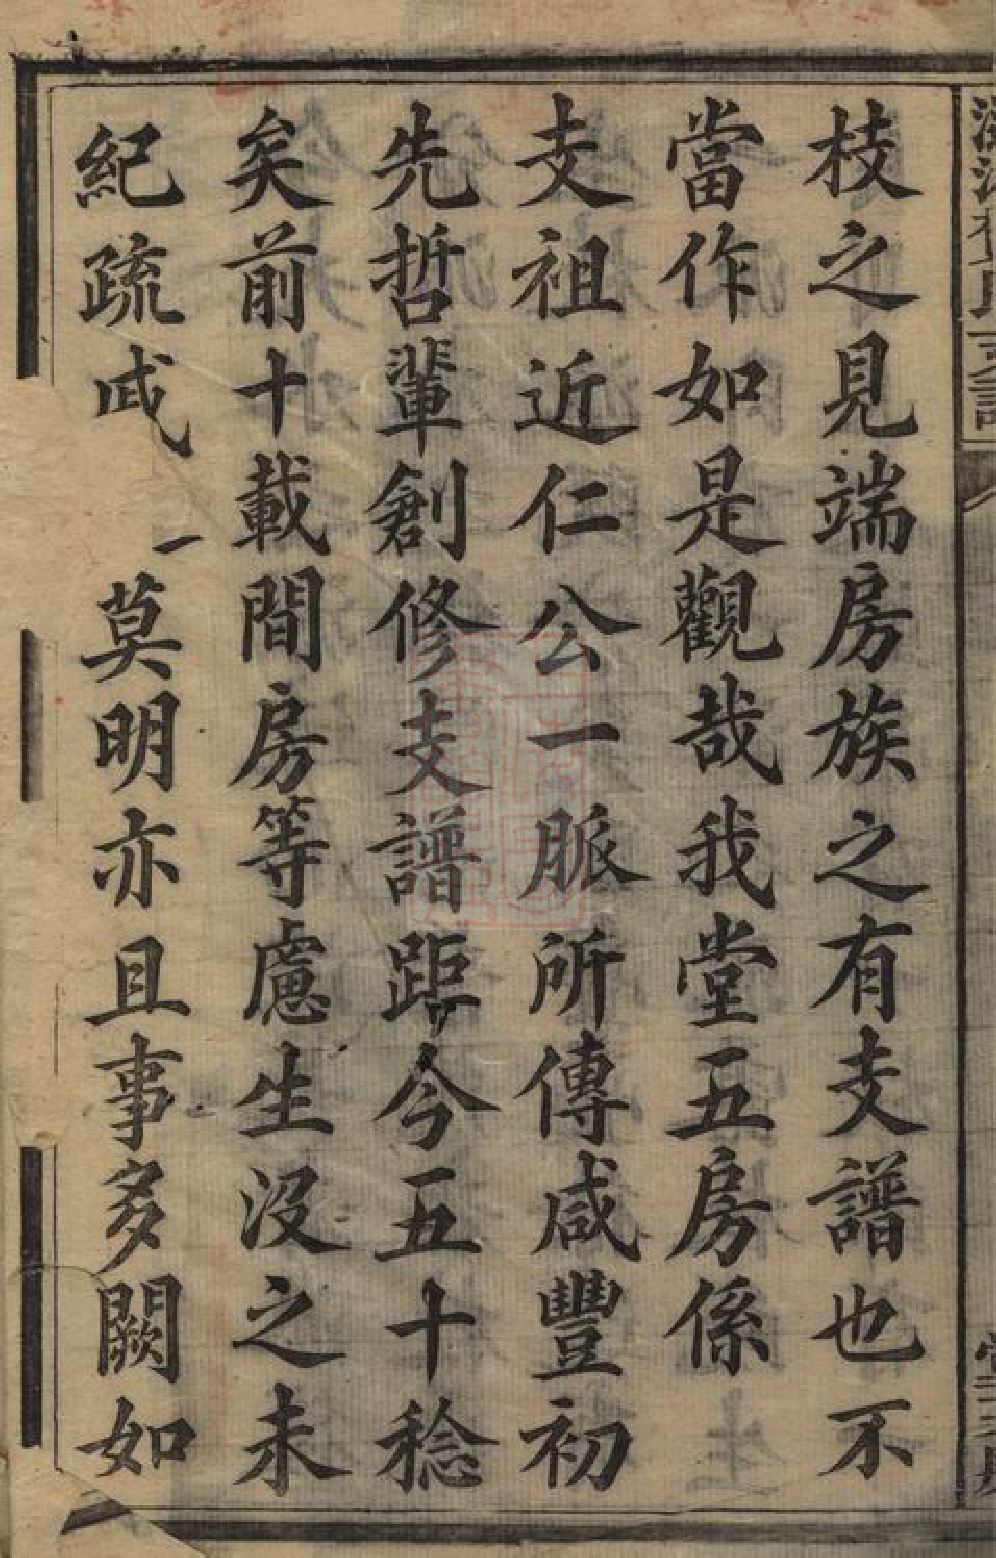 枝之見端房族之有支譜也不
當作如是觀哉我堂五房係
支祖近仁公一脈所傳咸豐初
先哲輩創修支譜距今五十稔
矣前十載間房等慮生没之未
紀疏戚 莫明亦且事多闕如